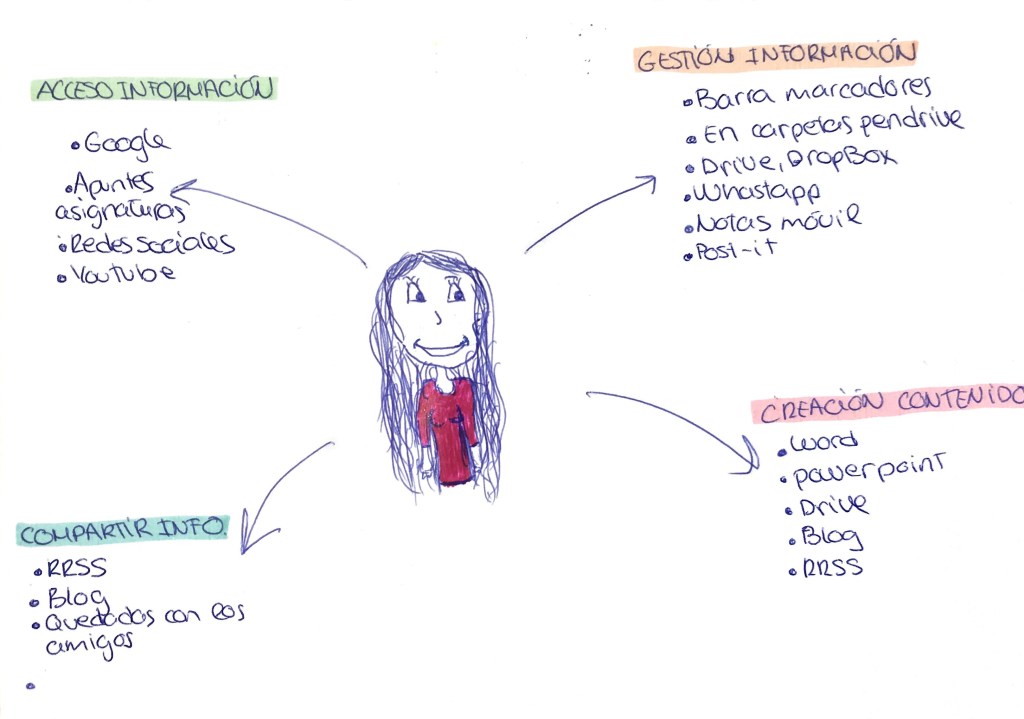 ACCESO INFORMACIÓN
• Google
• Apuntes
asignaturas
• Redes sociales
• Youtube
GESTIÓN INFORMACIÓN
• Barra marcadores
• En carpetas pendrive
• Drive, DropBox
• Whastapp
• Notas móvil
• Post-it
CREACIÓN CONTENIDO
• Word
• powerpoint
• Drive
• Blog
• RRSS
COMPARTIR INFO.
• RRSS
• Blog
• Quedadas con los
amigos
•